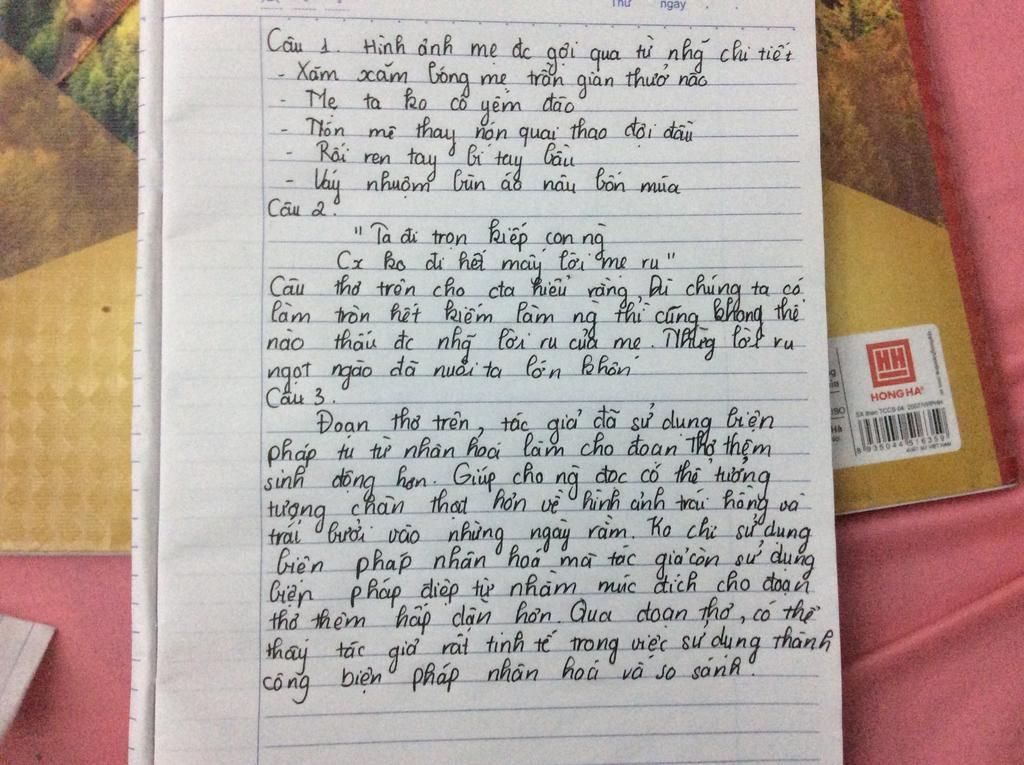 Thứ ngày
Câu 1. Hình ảnh mẹ đc gợi qua từ nhg̃ chi tiết
- Xăm xắm bóng mẹ trần gian thưở nào
- Mẹ ta ko có yếm đào
- Nón mê thay nón quai thao đội đầu
- Rối ren tay bí tay bầu
- Váy nhuộm bùn áo nâu bốn mùa
Câu 2.
" Ta đi trọn kiếp con ng
Cx ko đi hết mấy lời mẹ ru "
Câu thơ trên cho cta hiểu rằng, Dù chúng ta có
làm tròn hết kiếm làm ng thì cũng không thể
nào thấu đc nhg̃ lời ru của mẹ. Những lời ru
ngọt ngào đã nuôi ta lớn khôn
Câu 3.
Đoạn thơ trên, tác giả đã sử dụng biện
pháp tu từ nhân hoá làm cho đoạn thơ thêm
sinh động hơn. Giúp cho ng đọc có thể tưởng
tượng chân thật hơn về hình ảnh trái hồng và
trái bưởi vào những ngày rằm. Ko chỉ sử dụng
biện pháp nhân hoá mà tác giả còn sử dụng
biện pháp điệp từ nhằm mục đích cho đoạn
thơ thêm hấp dẫn hơn. Qua đoạn thơ, có thể
thấy tác giả rất tinh tế trong việc sử dụng thành
công biện pháp nhân hoá và so sánh.
HH
HONG HA
8 935044 516359